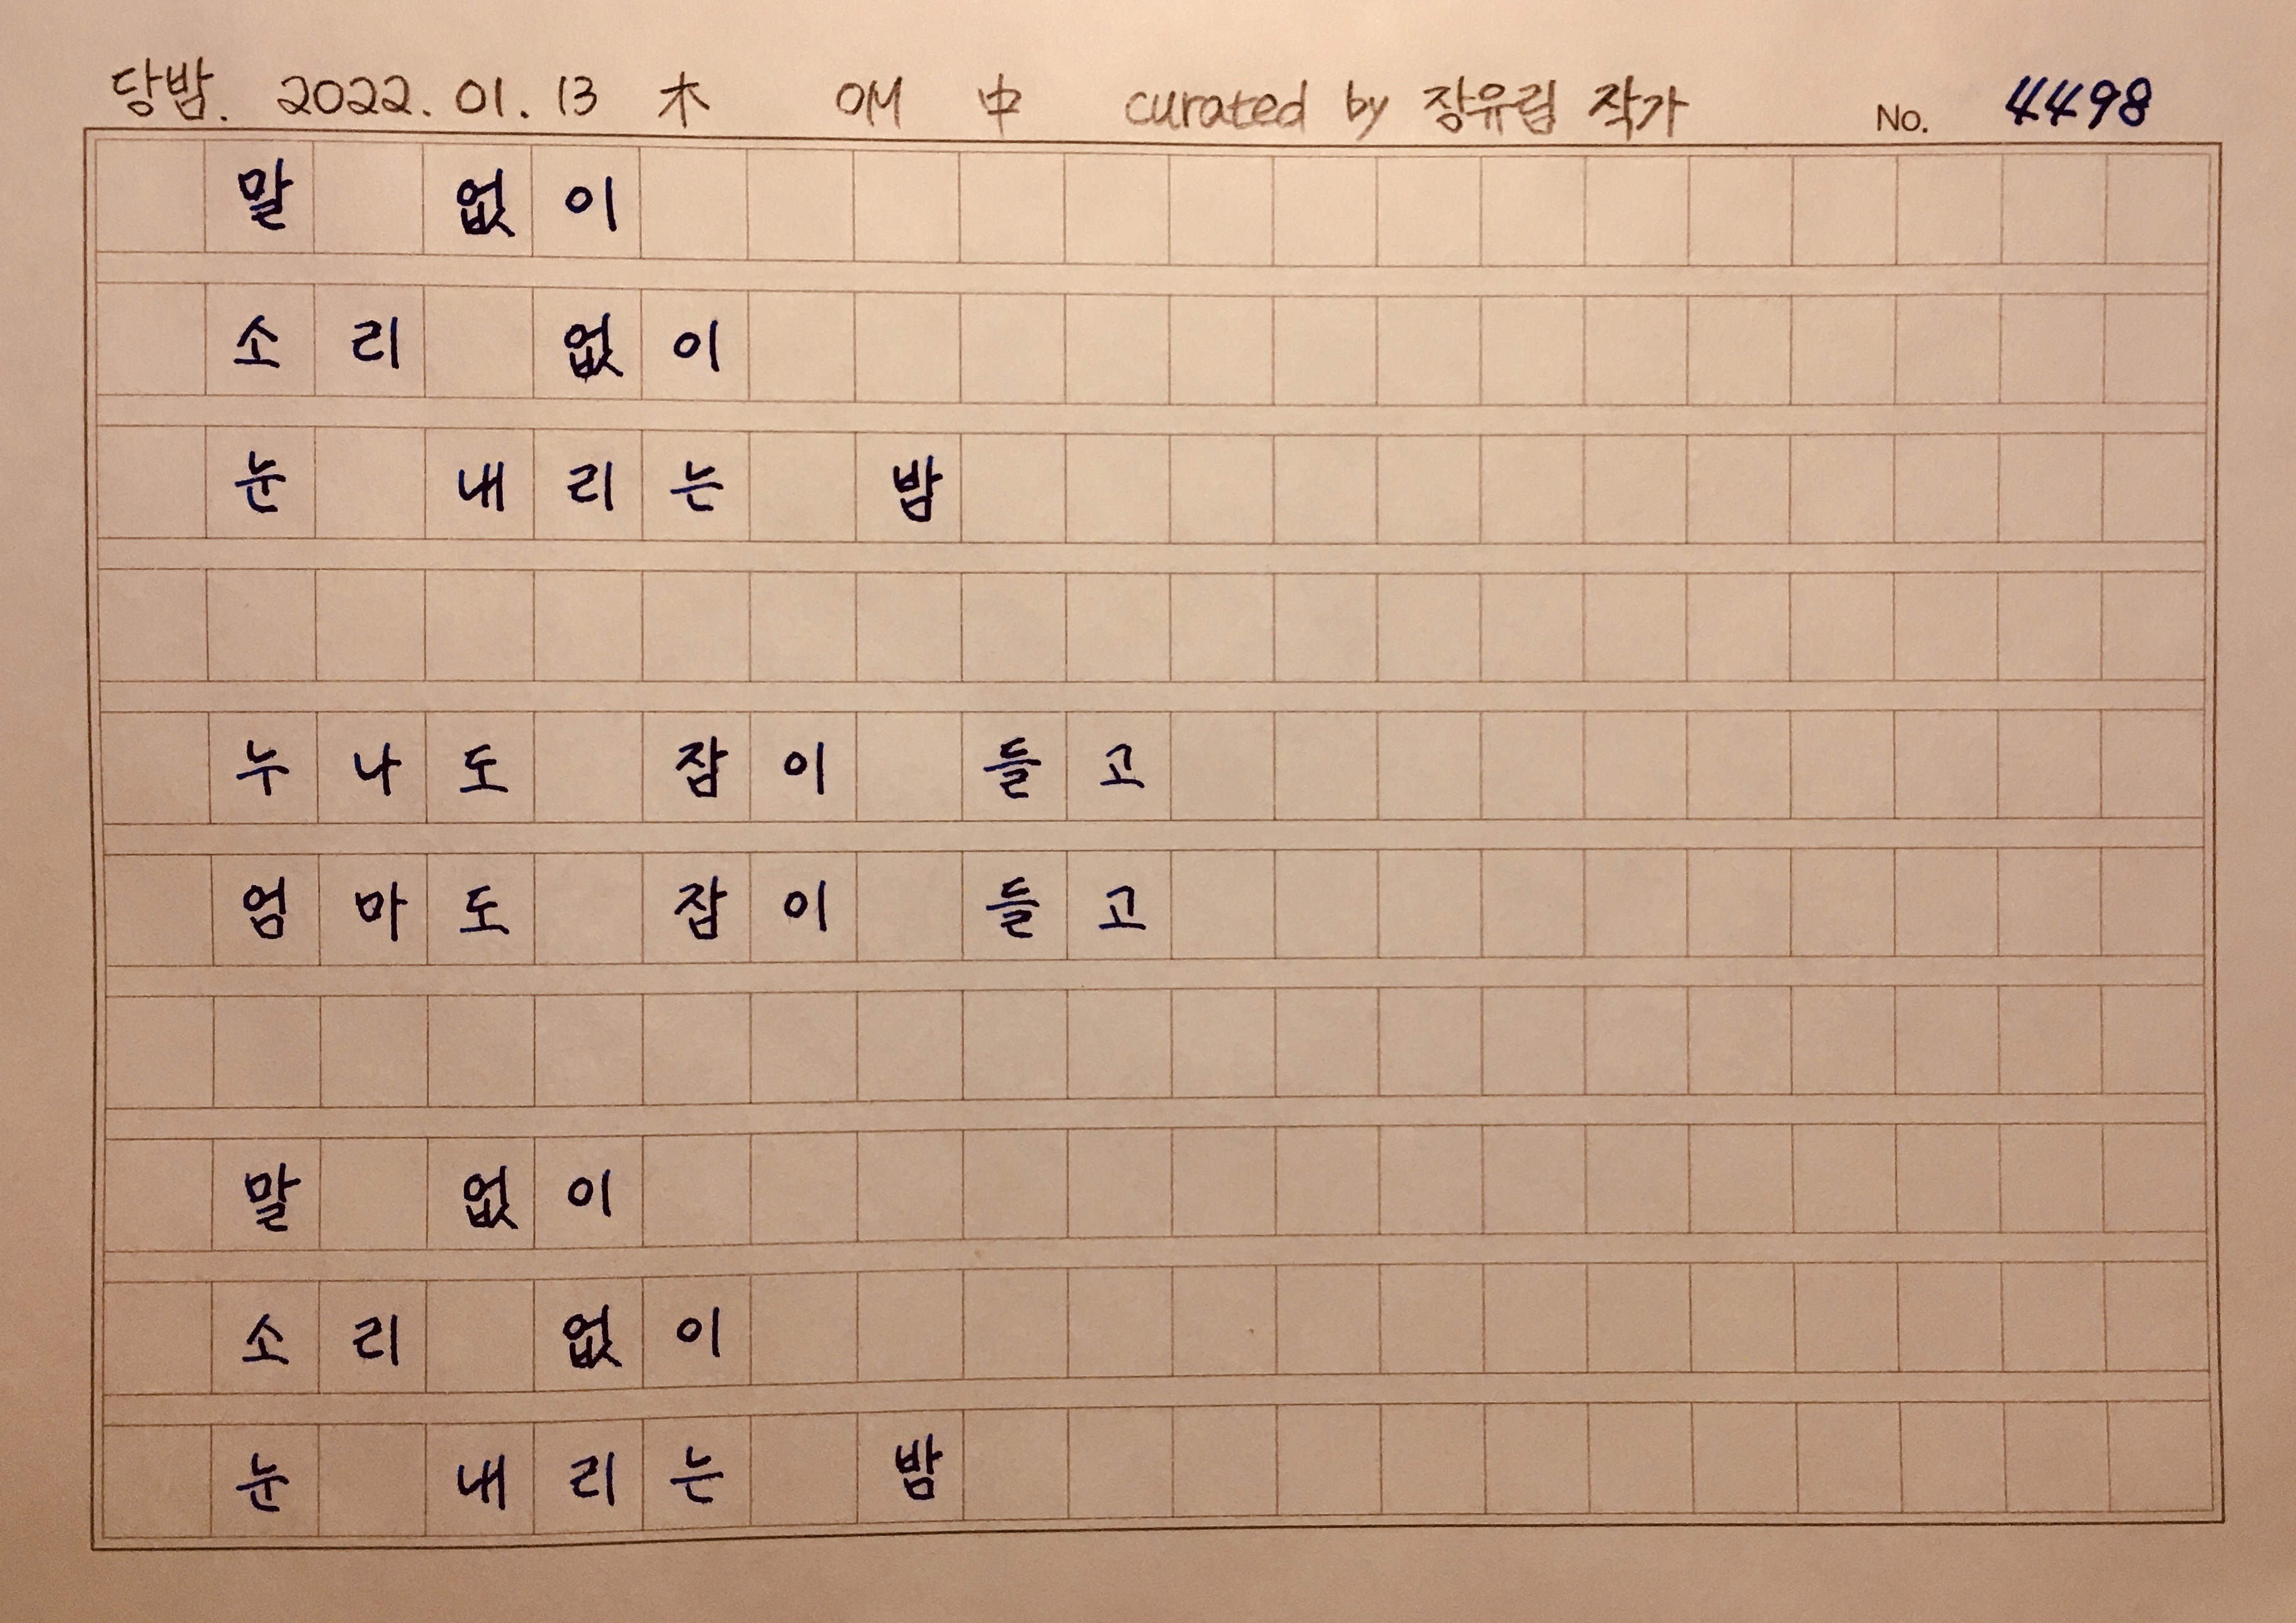 당밤. 2022. 01. 13 木 OM 中 curated by 장유림 작가 No. 4498
말 없이
소리 없이
눈 내리는 밤
누나도 잠이 들고
엄마도 잠이 들고
말 없이
소리 없이
눈 내리는 밤